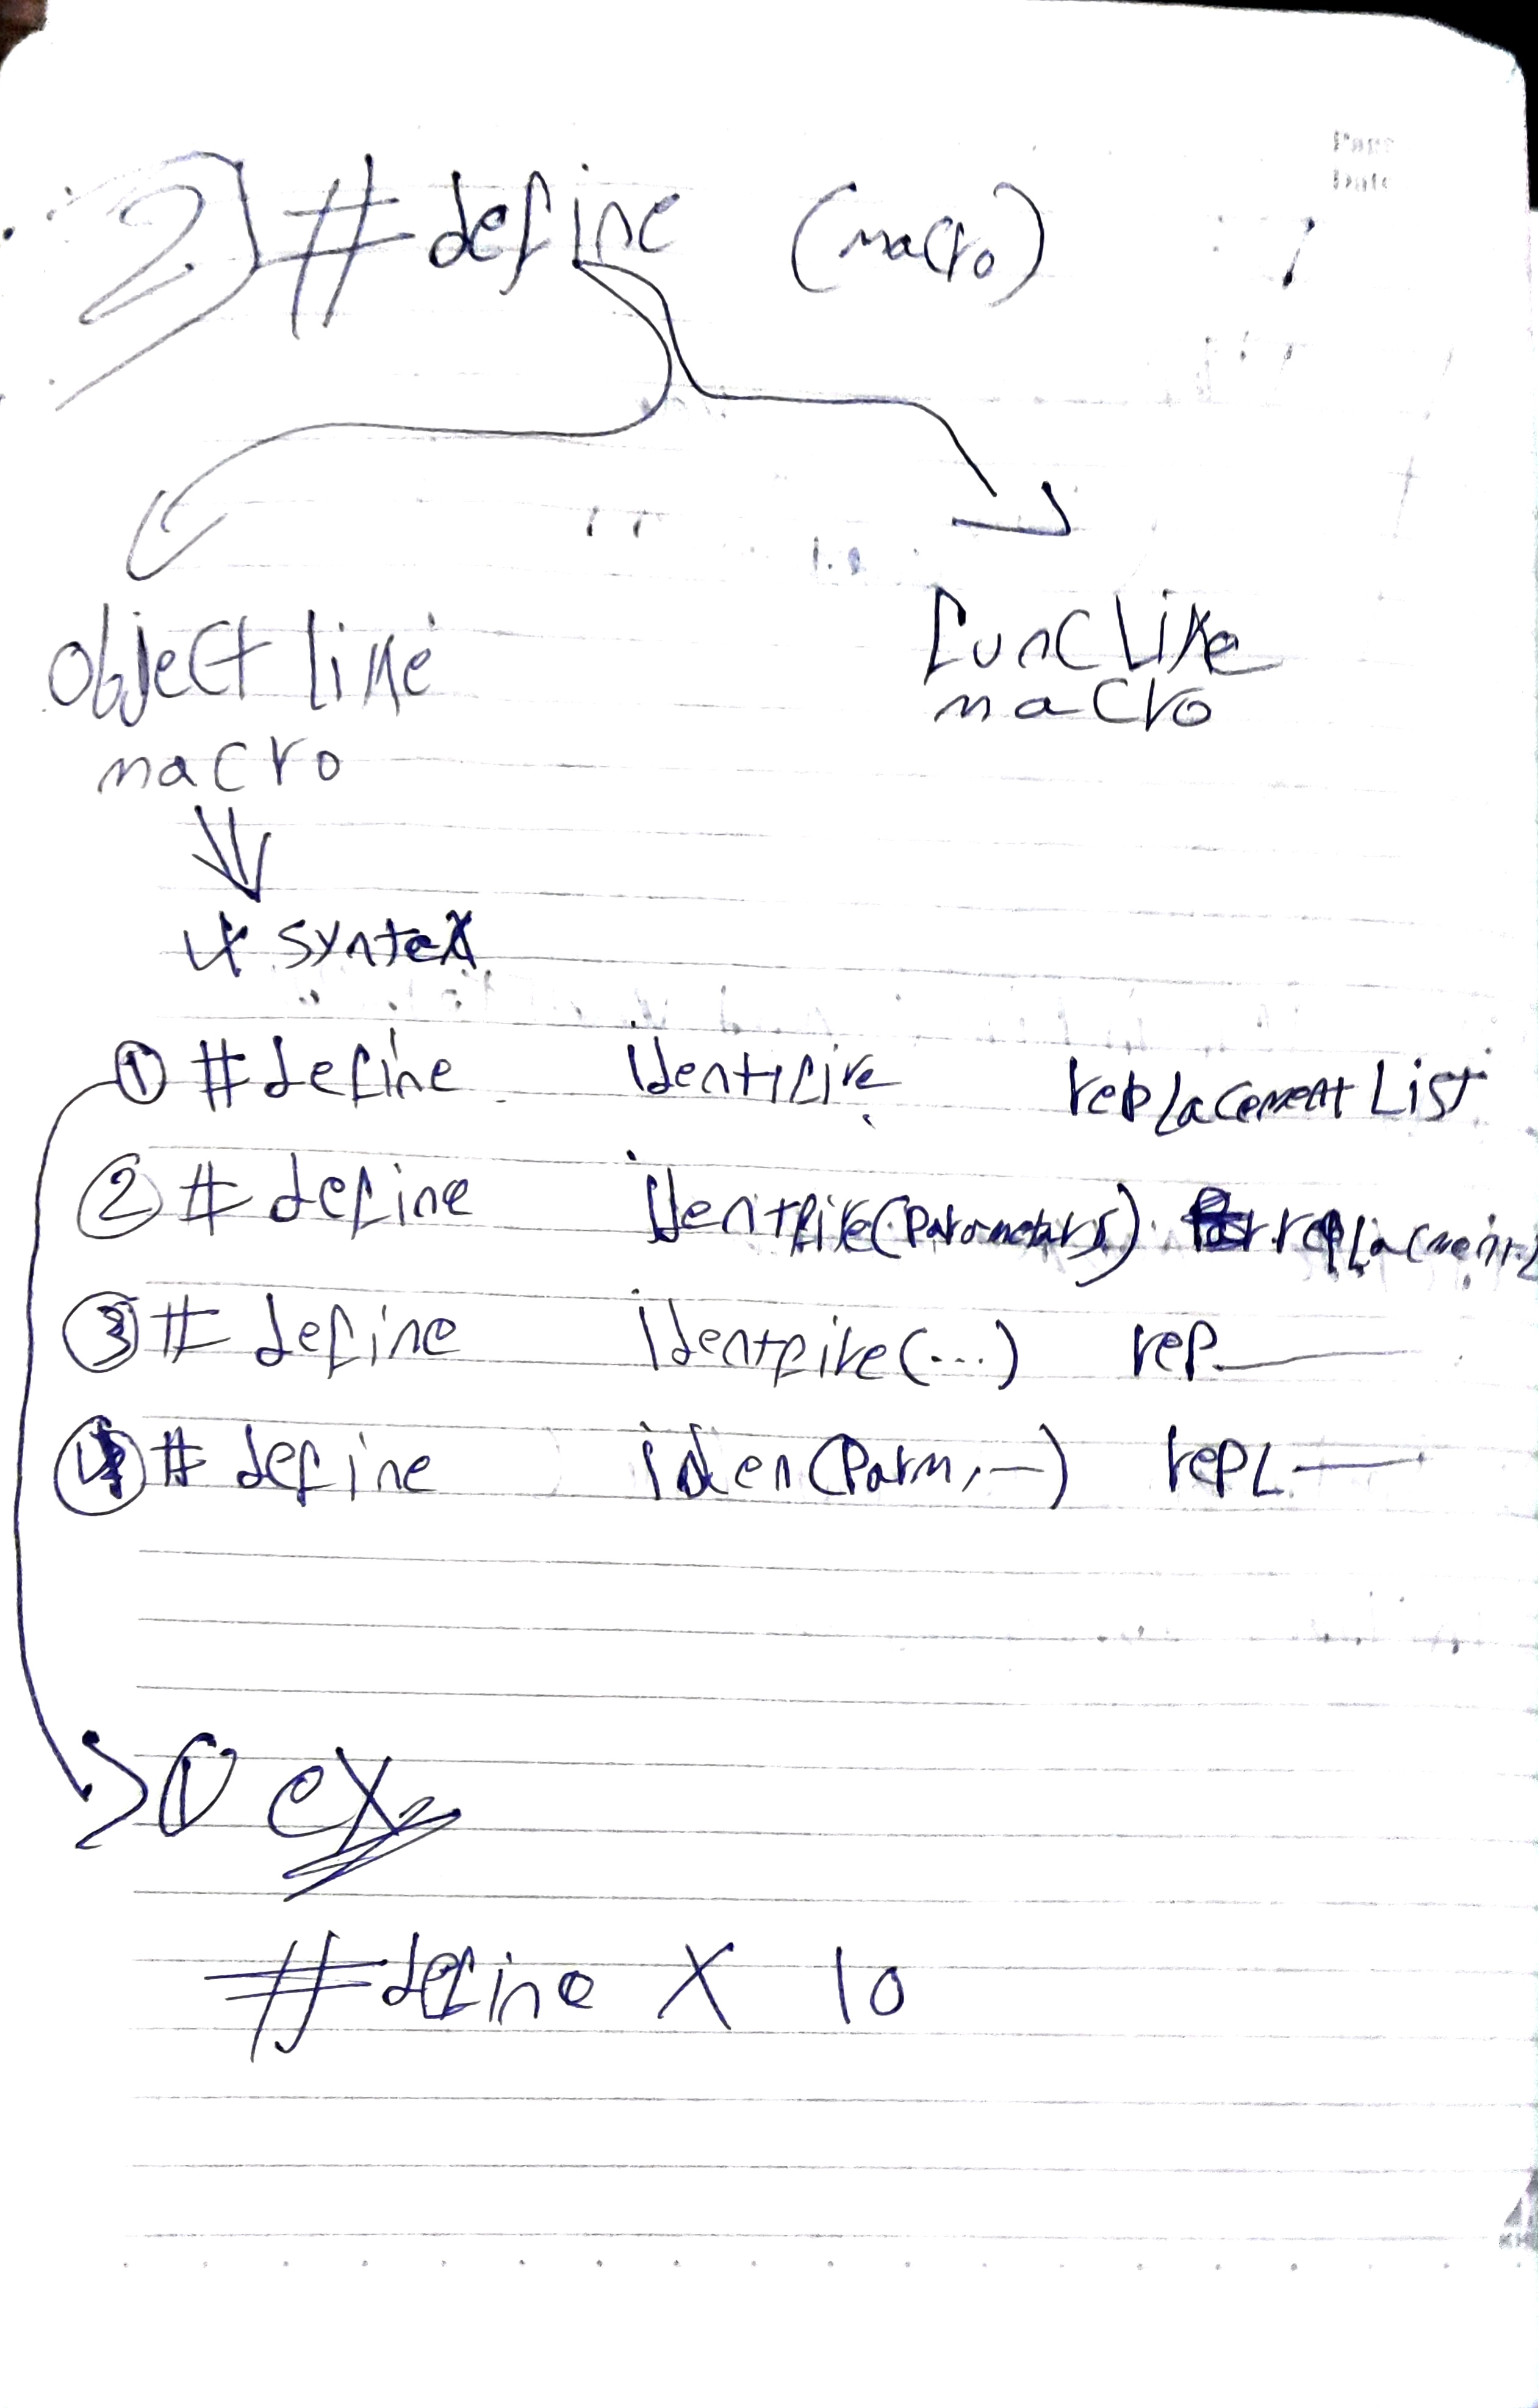 2) #define (macro)
object like macro
func like macro
* syntax
① #define identifire replacement List
② # define identfire(Parometars) replacment
③ # define identfire(...) rep
④ # define iden(Parm, —) repl
① ex
#define X 10